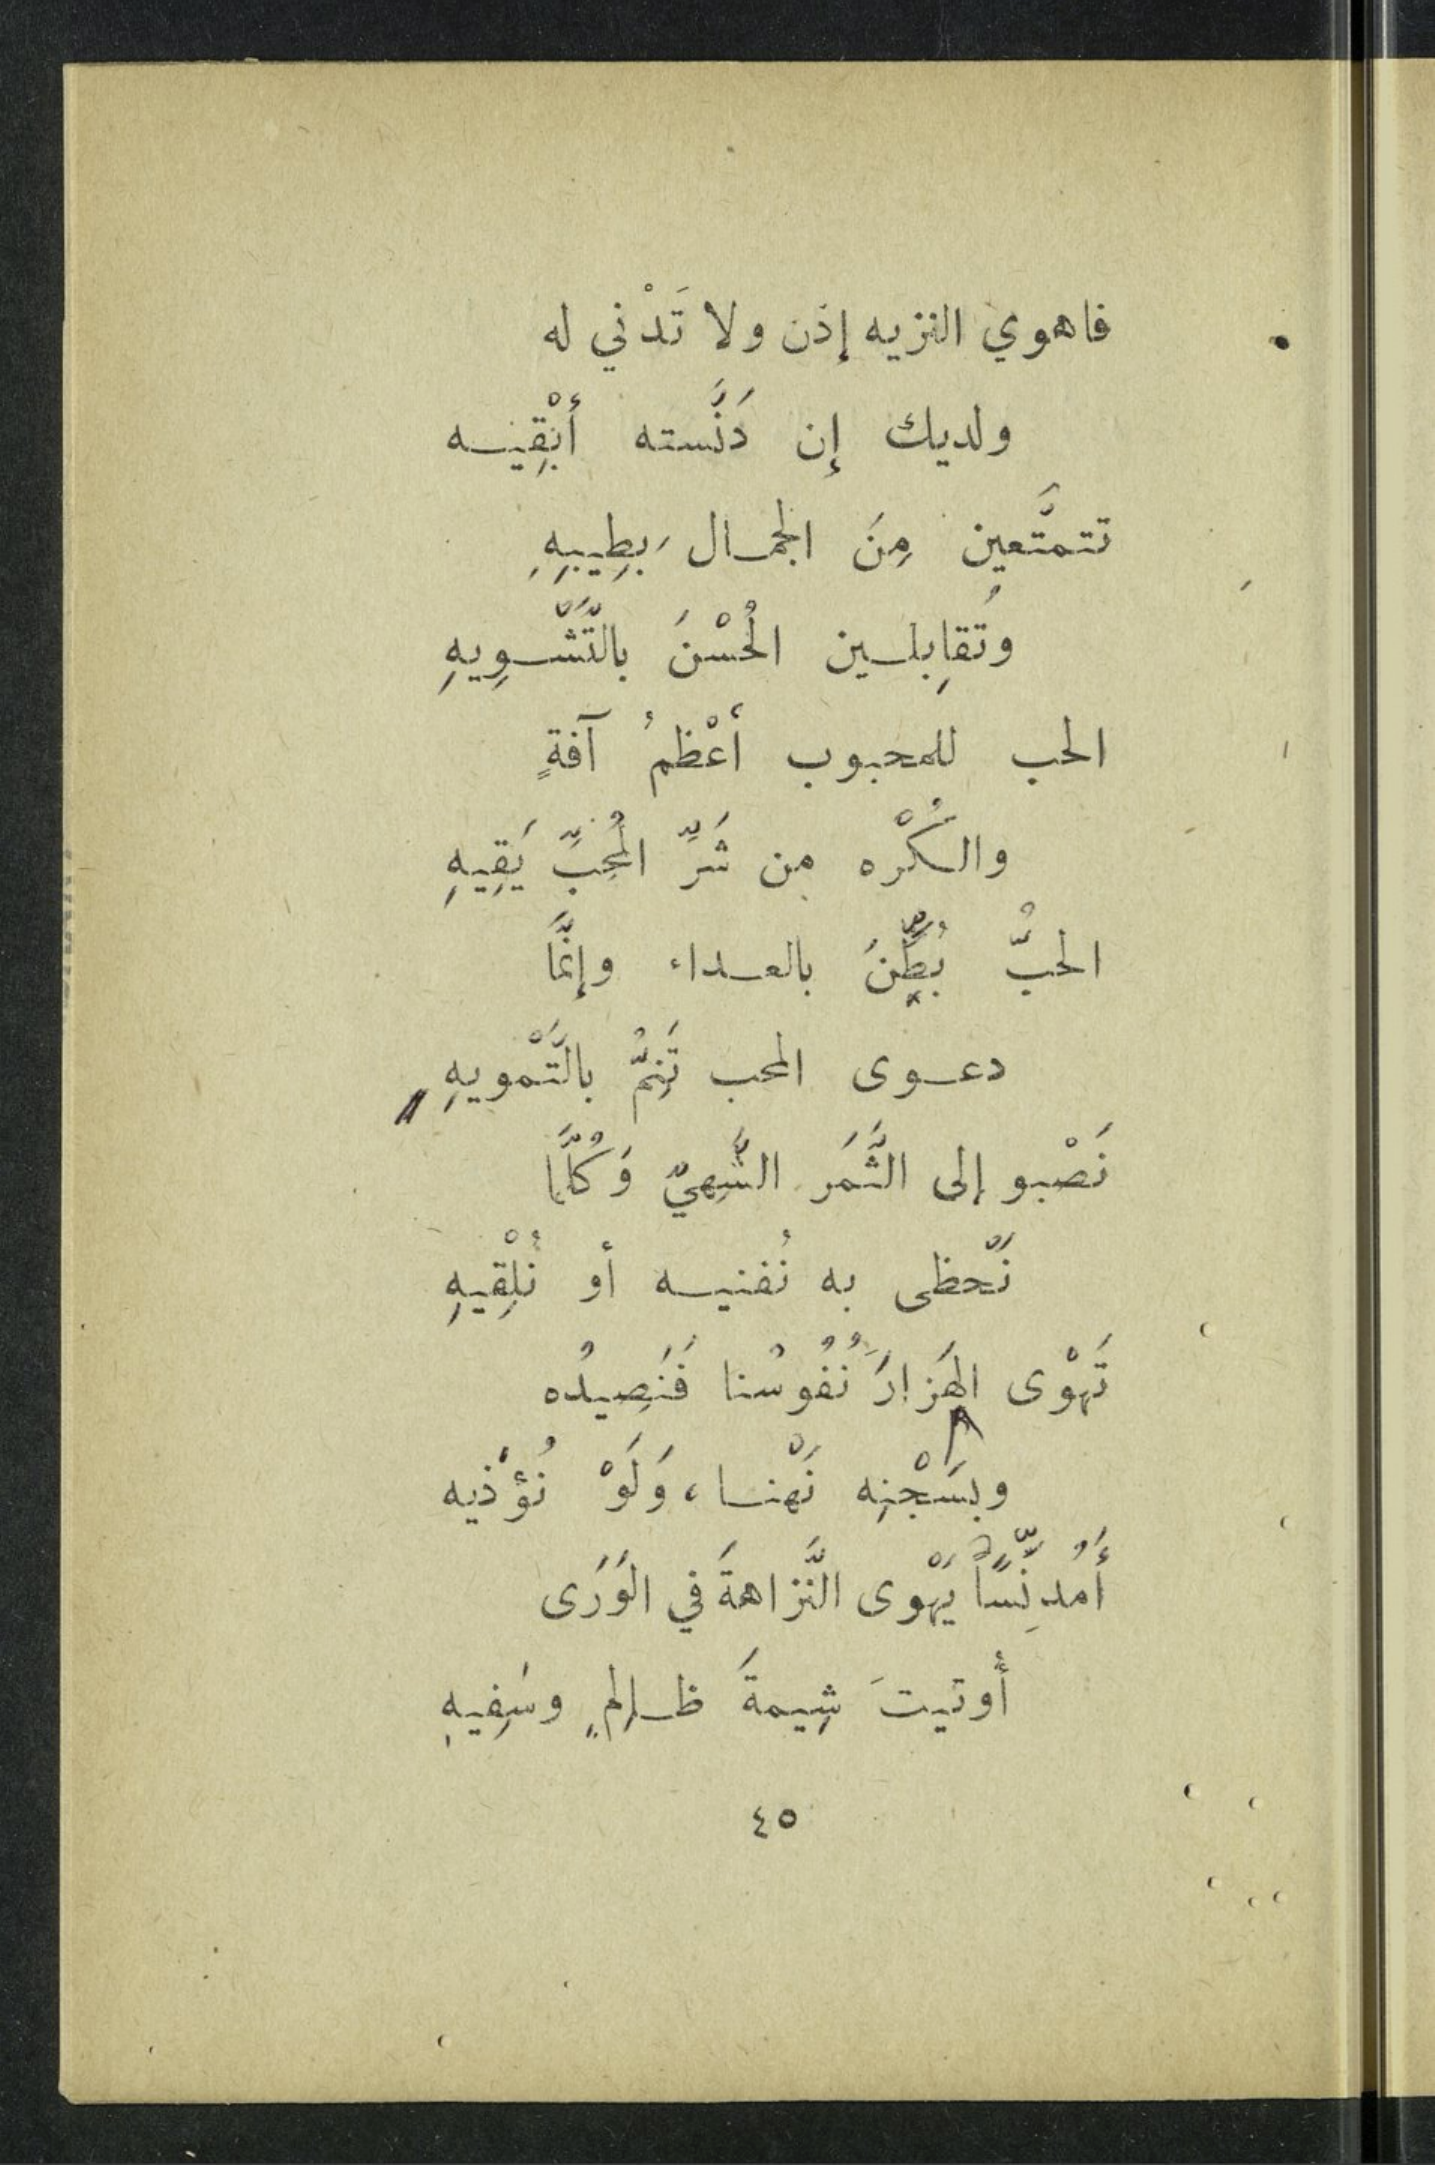 فاهوي النزيه إذن ولا تَدْني له
ولديك إن دَنَّسته أَبْقِيـه
تتمتَّعين مِنَ الجمـال بِطِيبِهِ
وتُقابِلـين الحُسْنَ بالتَّشْـوِيهِ
الحب للمحبوب أعْظمُ آفةٍ
والكُرْه من شَرِّ المُحِبِّ يَقِيهِ
الحبُّ بُطِّنَ بالعـداء وإنَّمَا
دعـوى المحب تَنِمُّ بالتَّمْويهِ
نَصْبو إلى الثَّمَر الشَّهيّ وَكُلَّما
نَحْظى به نُفنيـه أو نُلْقِيهِ
تَهْوى الهَزارَ نُفُوسُنا فَنَصِيدُه
وبسَجْنِه نَهْنـا، وَلَوْ نُؤْذيه
أَمُدنِّساً يَهْوى النَّزاهةَ في الوَرَى
أُوتيتَ شِيمةَ ظـالِمٍ وسَفِيهِ
٤٥